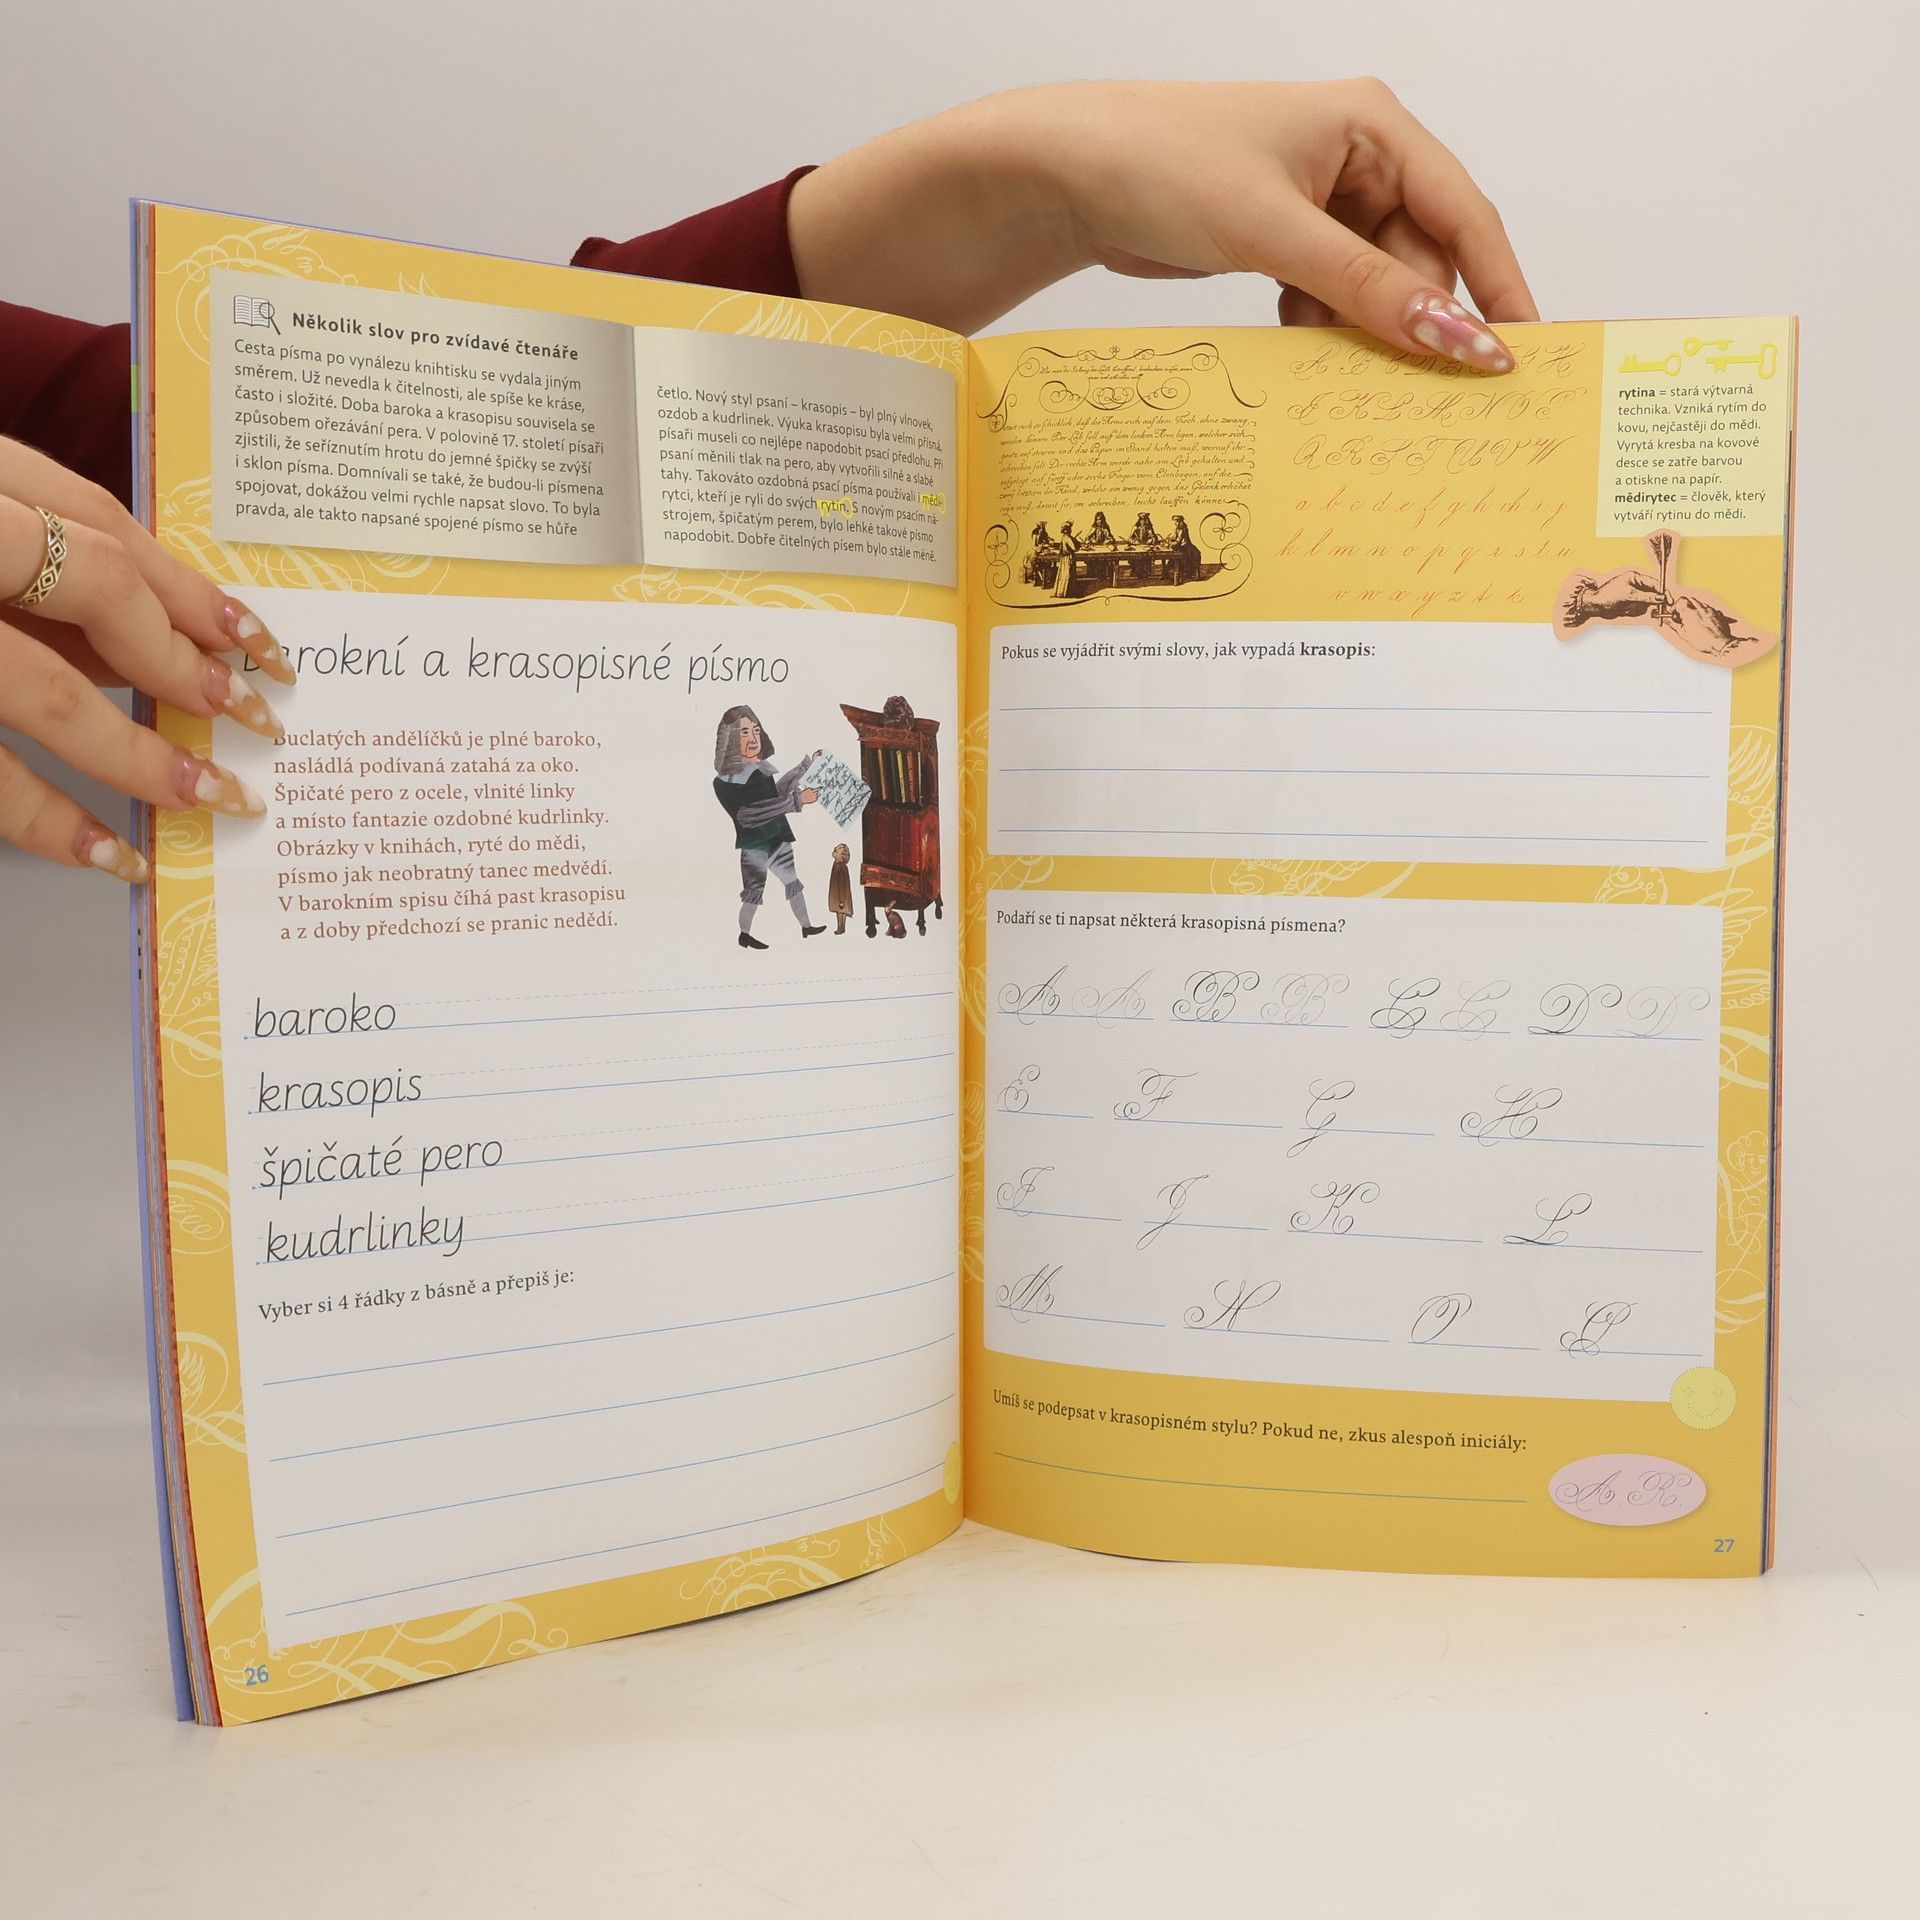 Několik slov pro zvídavé čtenáře
Cesta písma po vynálezu knihtisku se vydala jiným
směrem. Už nevedla k čitelnosti, ale spíše ke kráse,
často i složité. Doba baroka a krasopisu souvisela se
způsobem ořezávání pera. V polovině 17. století písaři
zjistili, že seříznutím hrotu do jemné špičky se zvýší
i sklon písma. Domnívali se také, že budou-li písmena
spojovat, dokážou velmi rychle napsat slovo. To byla
pravda, ale takto napsané spojené písmo se hůře
četlo. Nový styl psaní – krasopis – byl plný vlnovek,
ozdob a kudrlinek. Výuka krasopisu byla velmi přísná,
písaři museli co nejlépe napodobit psací předlohu. Při
psaní měnili tlak na pero, aby vytvořili silné a slabé
tahy. Takováto ozdobná psací písma používali i mědi-
rytci, kteří je ryli do svých rytin. S novým psacím ná-
strojem, špičatým perem, bylo lehké takové písmo
napodobit. Dobře čitelných písem bylo stále méně.
Barokní a krasopisné písmo
Buclatých andělíčků je plné baroko,
nasládlá podívaná zatahá za oko.
Špičaté pero z ocele, vlnité linky
a místo fantazie ozdobné kudrlinky.
Obrázky v knihách, ryté do mědi,
písmo jak neobratný tanec medvědí.
V barokním spisu číhá past krasopisu
a z doby předchozí se pranic nedědí.
baroko
krasopis
špičaté pero
kudrlinky
Vyber si 4 řádky z básně a přepiš je:
26
a b c d e f g h ch i j
k l m n o p q r s t u
v w x y z
rytina = stará výtvarná
technika. Vzniká rytím do
kovu, nejčastěji do mědi.
Vyrytá kresba na kovové
desce se zatře barvou
a otiskne na papír.
mědirytec = člověk, který
vytváří rytinu do mědi.
Pokus se vyjádřit svými slovy, jak vypadá krasopis:
Podaří se ti napsat některá krasopisná písmena?
A A B B C C D D
E F G H
I J K L
M N O P
Umíš se podepsat v krasopisném stylu? Pokud ne, zkus alespoň iniciály:
A. R.
27